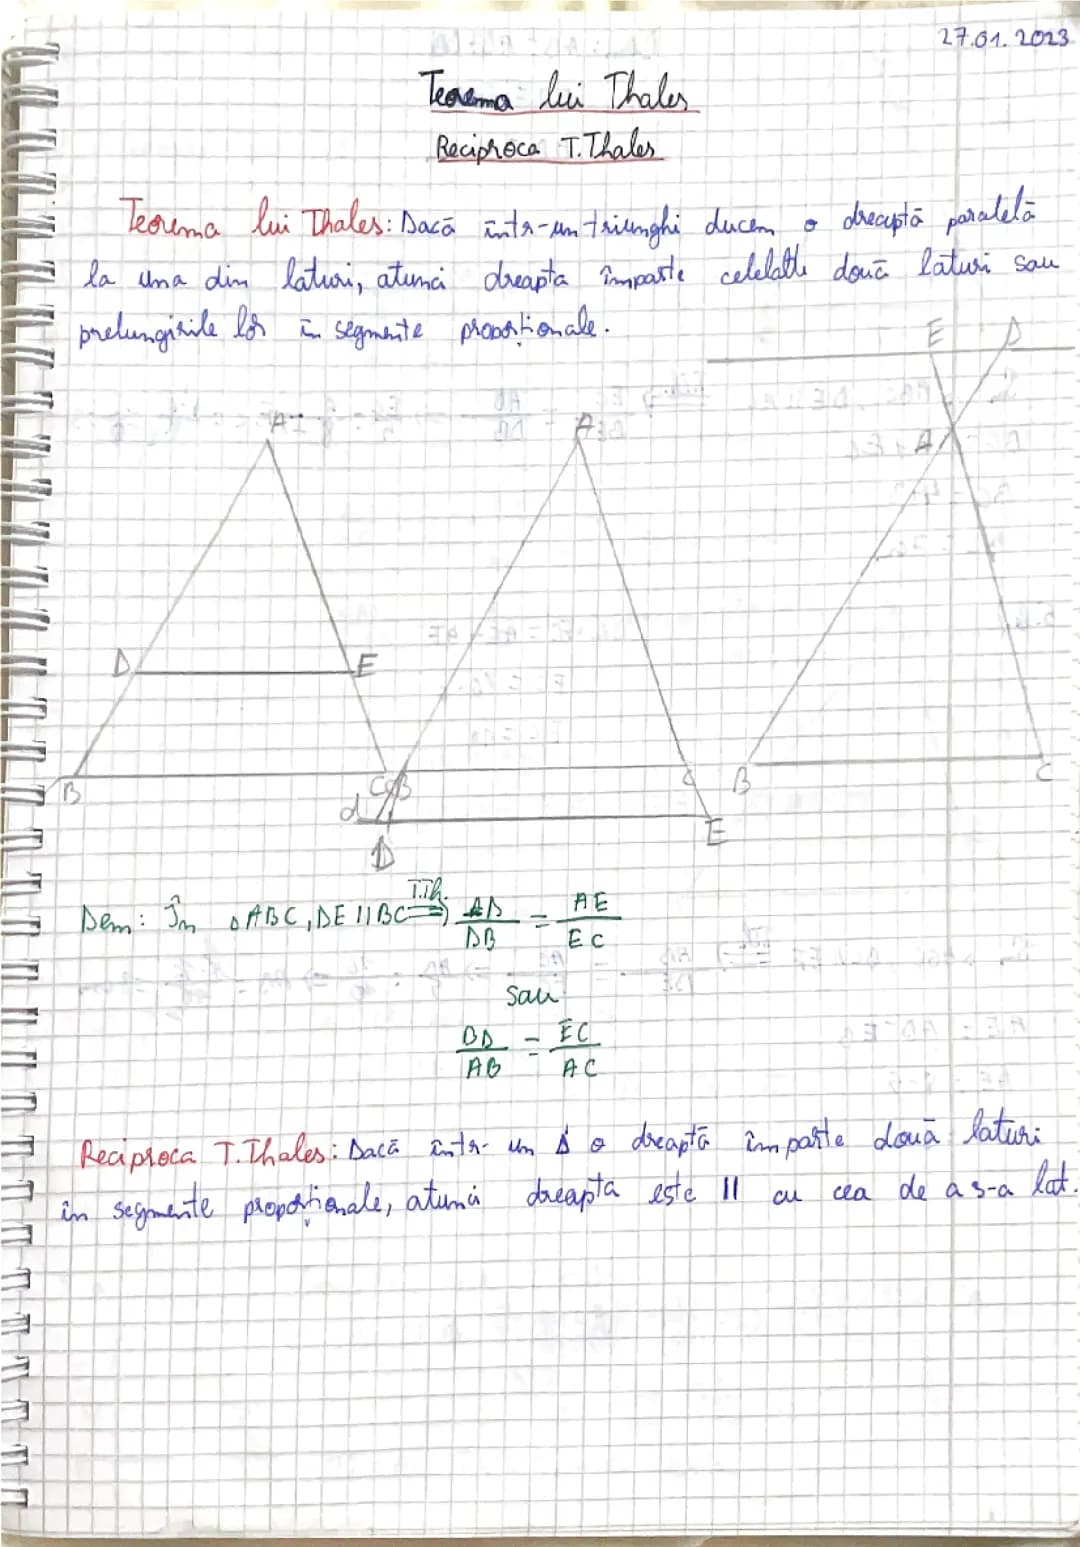 27.01.2023
Teorema lui Thales
Reciproca T.Thales
Teorema lui Thales: Dacā într-un triunghi ducem o dreaptā paralelā
la una din laturi, atunci dreapta împarte celelalte douā laturi sau
prelungirile lor în segmente proporționale.
E D
A A A
D E
B C B C B C
d D E
Dem: În △ABC, DE || BC =T.Th.=> AD/DB = AE/EC
sau
BD/AB = EC/AC
Reciproca T.Thales: Dacā într-un Δ o dreaptā împarte douā laturi
în segmente proporționale, atunci dreapta este || cu cea de a 3-a lat.